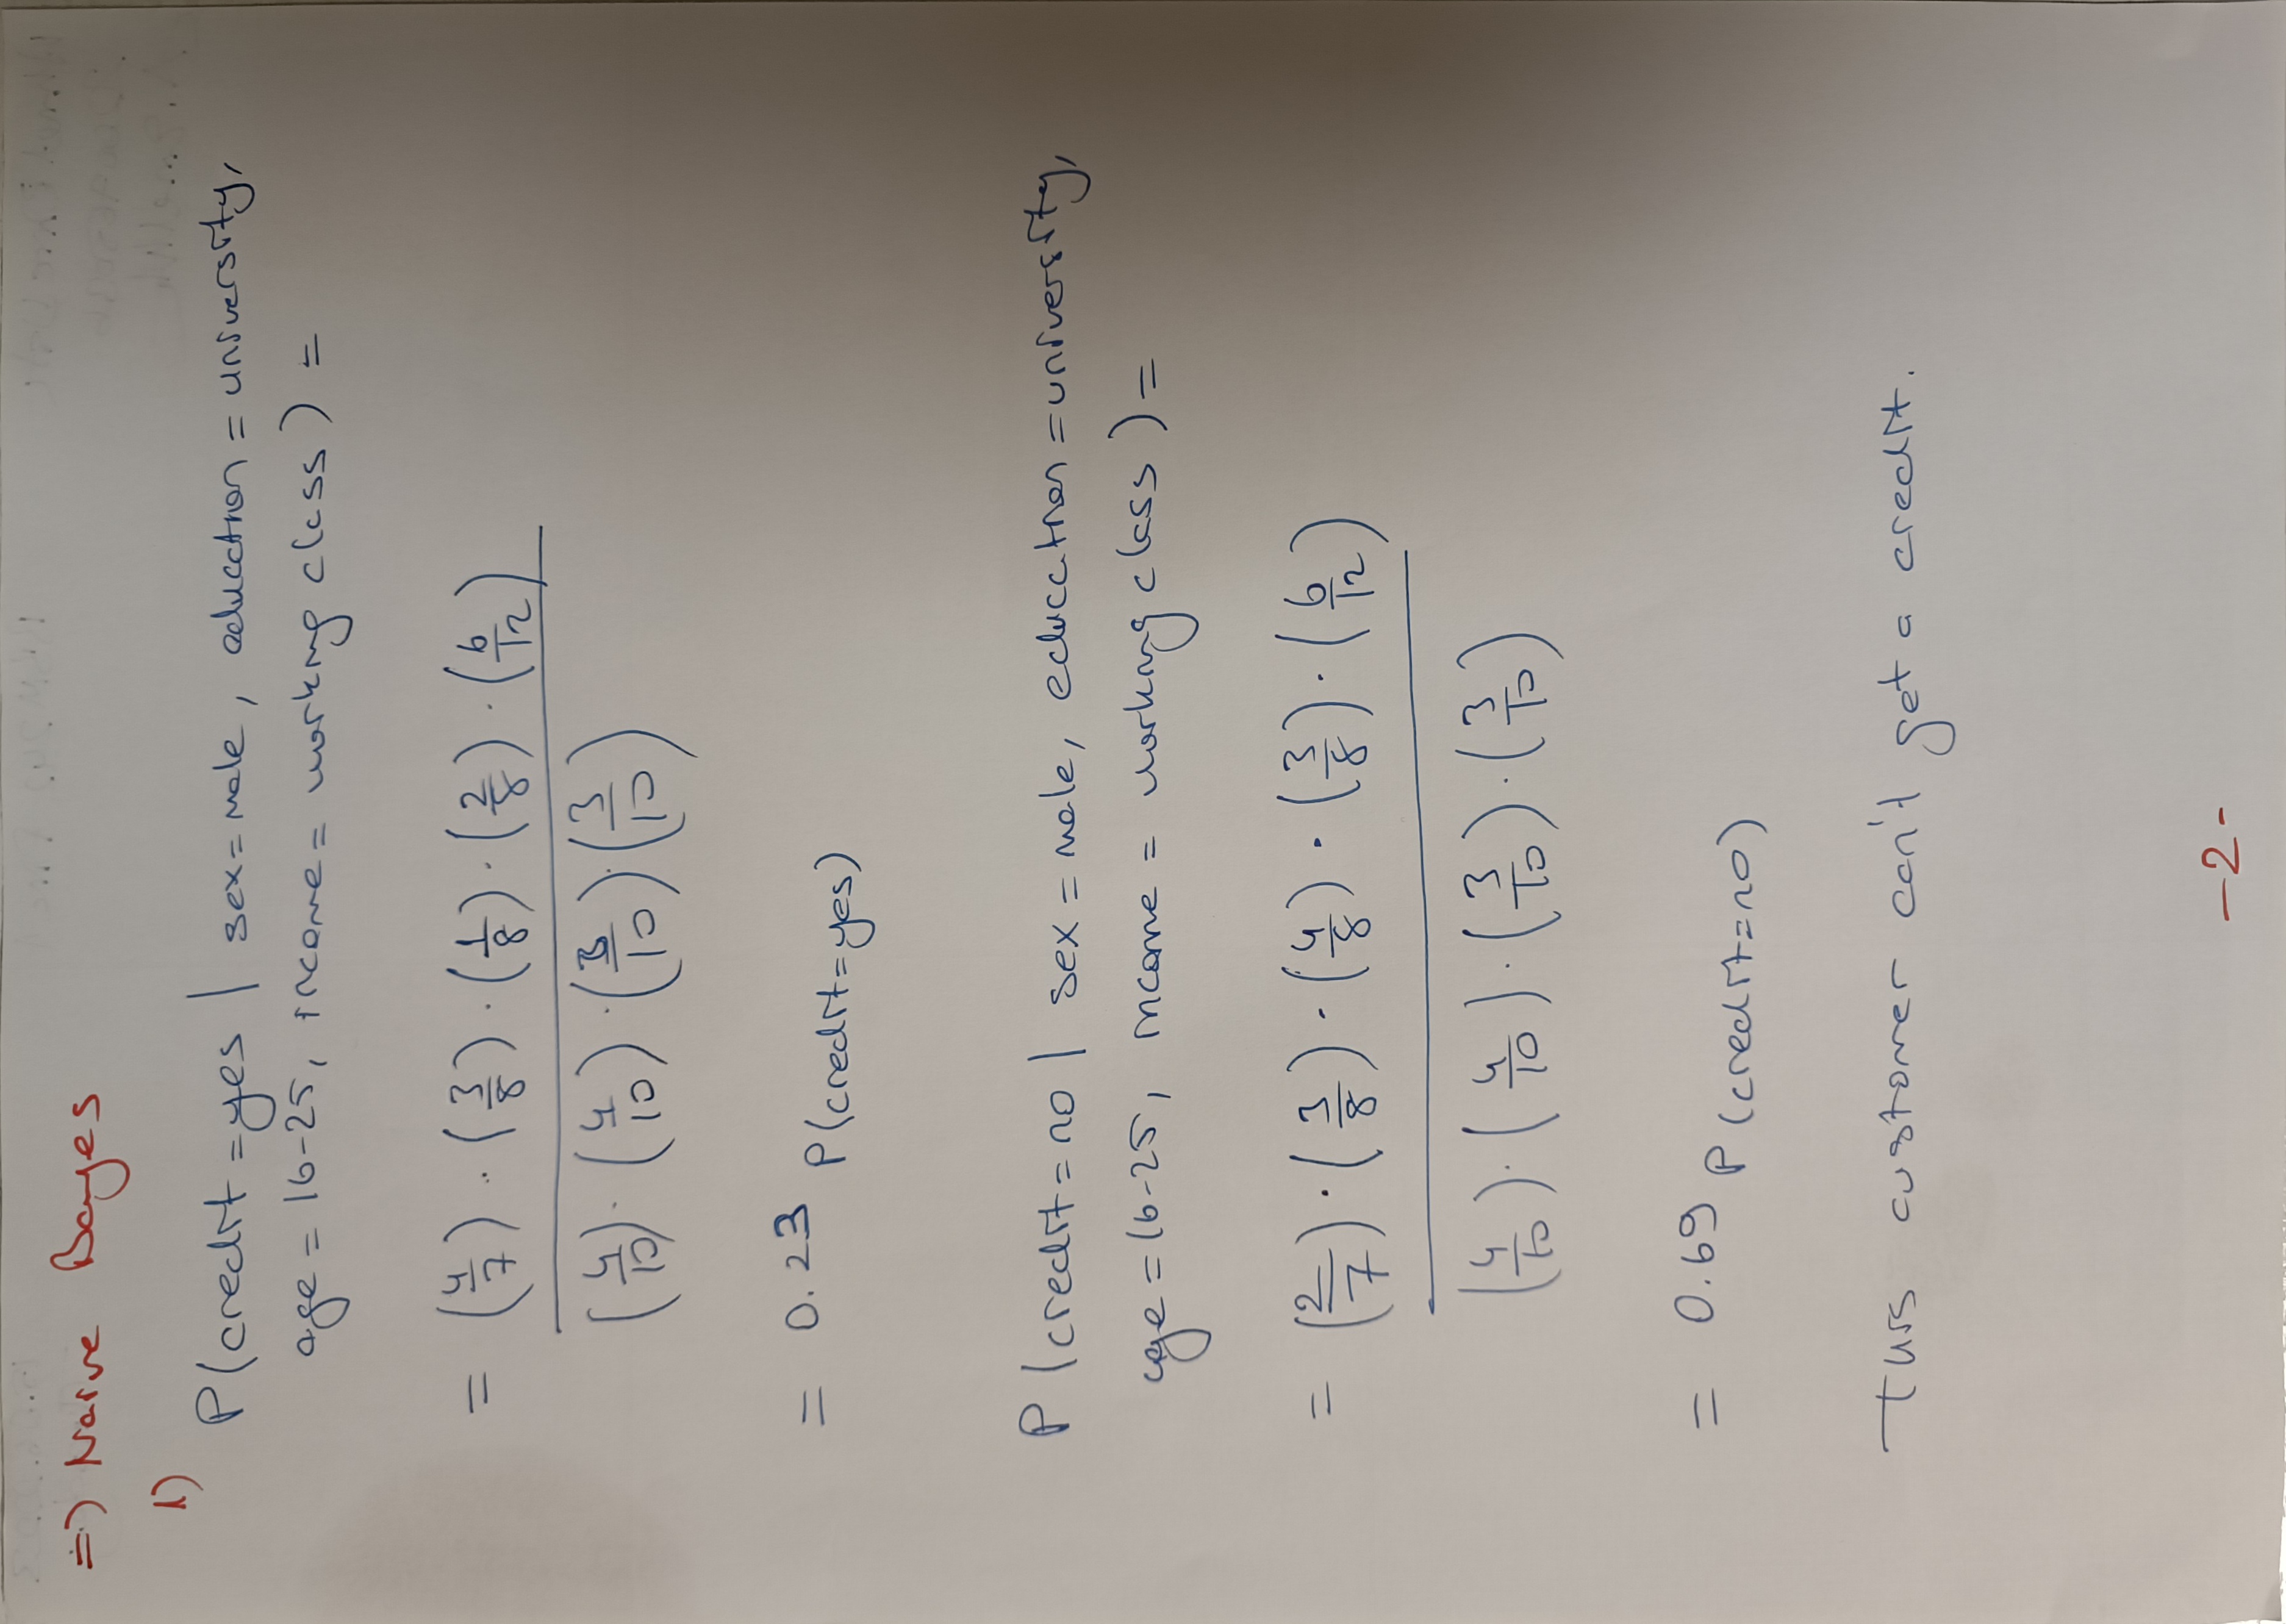 =) Naive Bayes
1)
P(credit=yes | sex=male, education=university,
age=16-25, income=working class) =
= (4/7) . (3/8) . (1/8) . (2/8) . (6/12)
(4/10) . (4/10) . (3/10) . (3/10)
= 0.23 P(credit=yes)
P(credit=no | sex=male, education=university,
age=16-25, income=working class) =
= (2/7) . (3/8) . (4/8) . (3/8) . (6/12)
(4/10) . (4/10) . (3/10) . (3/10)
= 0.69 P(credit=no)
This customer can't get a credit.
-2-